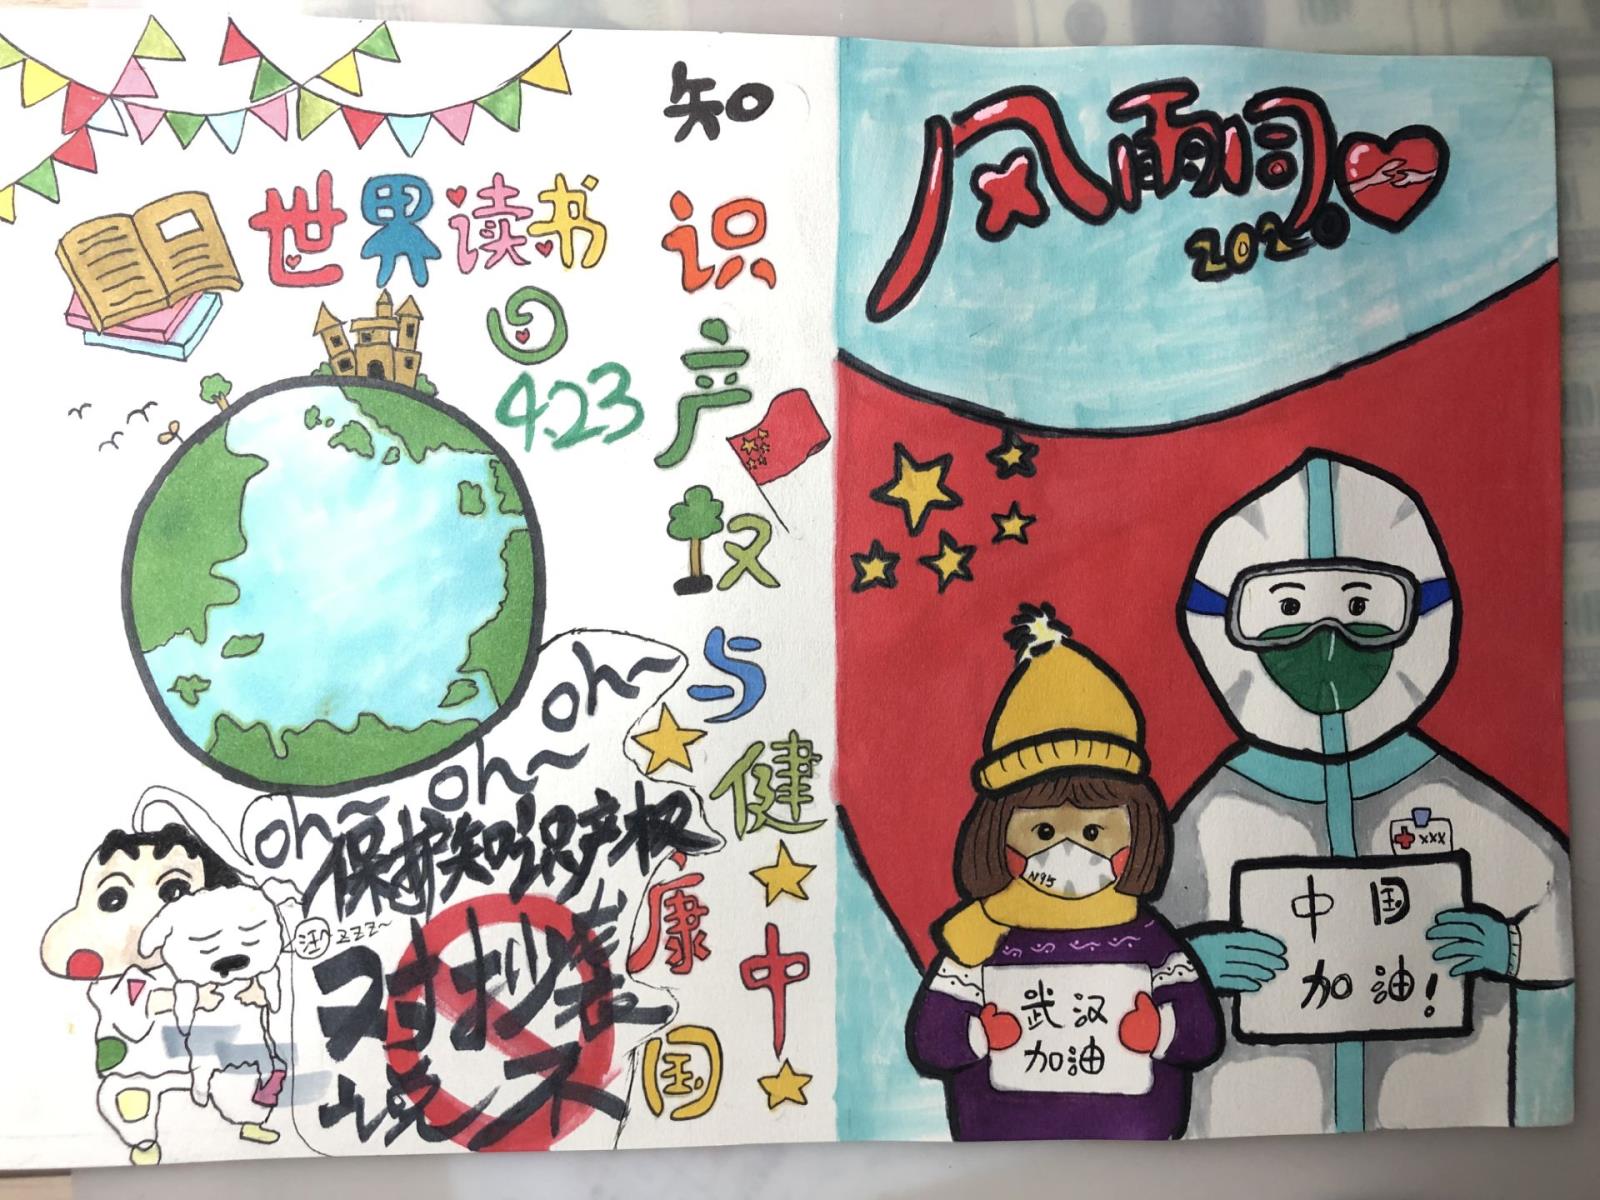 世界读书
日
4.23
知识产权与健康中国
oh~ oh~ oh~
保护知识产权
对抄袭
说不
汪 zzz~
风雨同
2020
N95
武汉
加油
xxx
中国
加油!